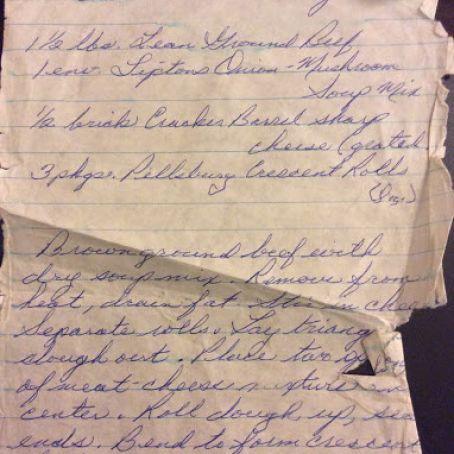 1 1/2 lbs. Lean Ground Beef
1 env. Liptons Onion-Mushroom
Soup Mix
1/2 brick Cracker Barrel sharp
cheese (grated
3 pkgs. Pellsbury Crescent Rolls
Brown ground beef with
dry soup mix. Remove from
heat, drain fat. Stir in chee
Separate rolls. Lay triang
dough out. Place two
of meat-cheese mixture in
center. Roll dough up, sea
ends. Bend to form crescent